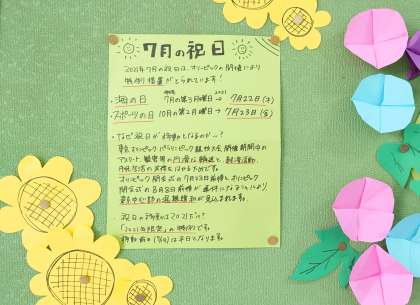 7月の祝日
2021年7月の祝日は、オリンピックの開催により
特例措置がとられています!
・海の日 7月の第3月曜日→7月22日(木)
・スポーツの日 10月の第2月曜日→7月23日(金)
・なぜ祝日が移動となるのか…?
東京オリンピックパラリンピック競技大会開催期間中の
アスリート、観客等の円滑な輸送と、経済活動、
市民生活の共存をはかるためです。
オリンピック開会式の7月23日前後とオリンピック
閉会式の8月8日前後が連休になることにより
東京中心部の混雑緩和が見込まれます。
・祝日の移動は2021だけ?
「2021年限定」の特例です。